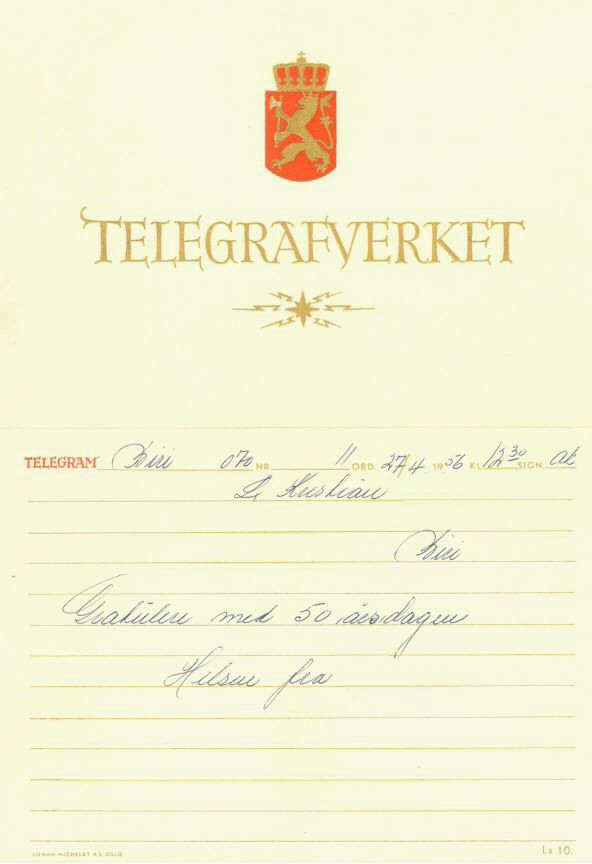 TELEGRAFVERKET
TELEGRAM Biri 070 NR 11 ORD. 27/4 1956 KL. 12 30 SIGN. ak
Kristian
Biri
Gratulere med 50 årsdagen
Hilsen fra
JOHAN MICHELET A.S, OSLO
Lx 10.